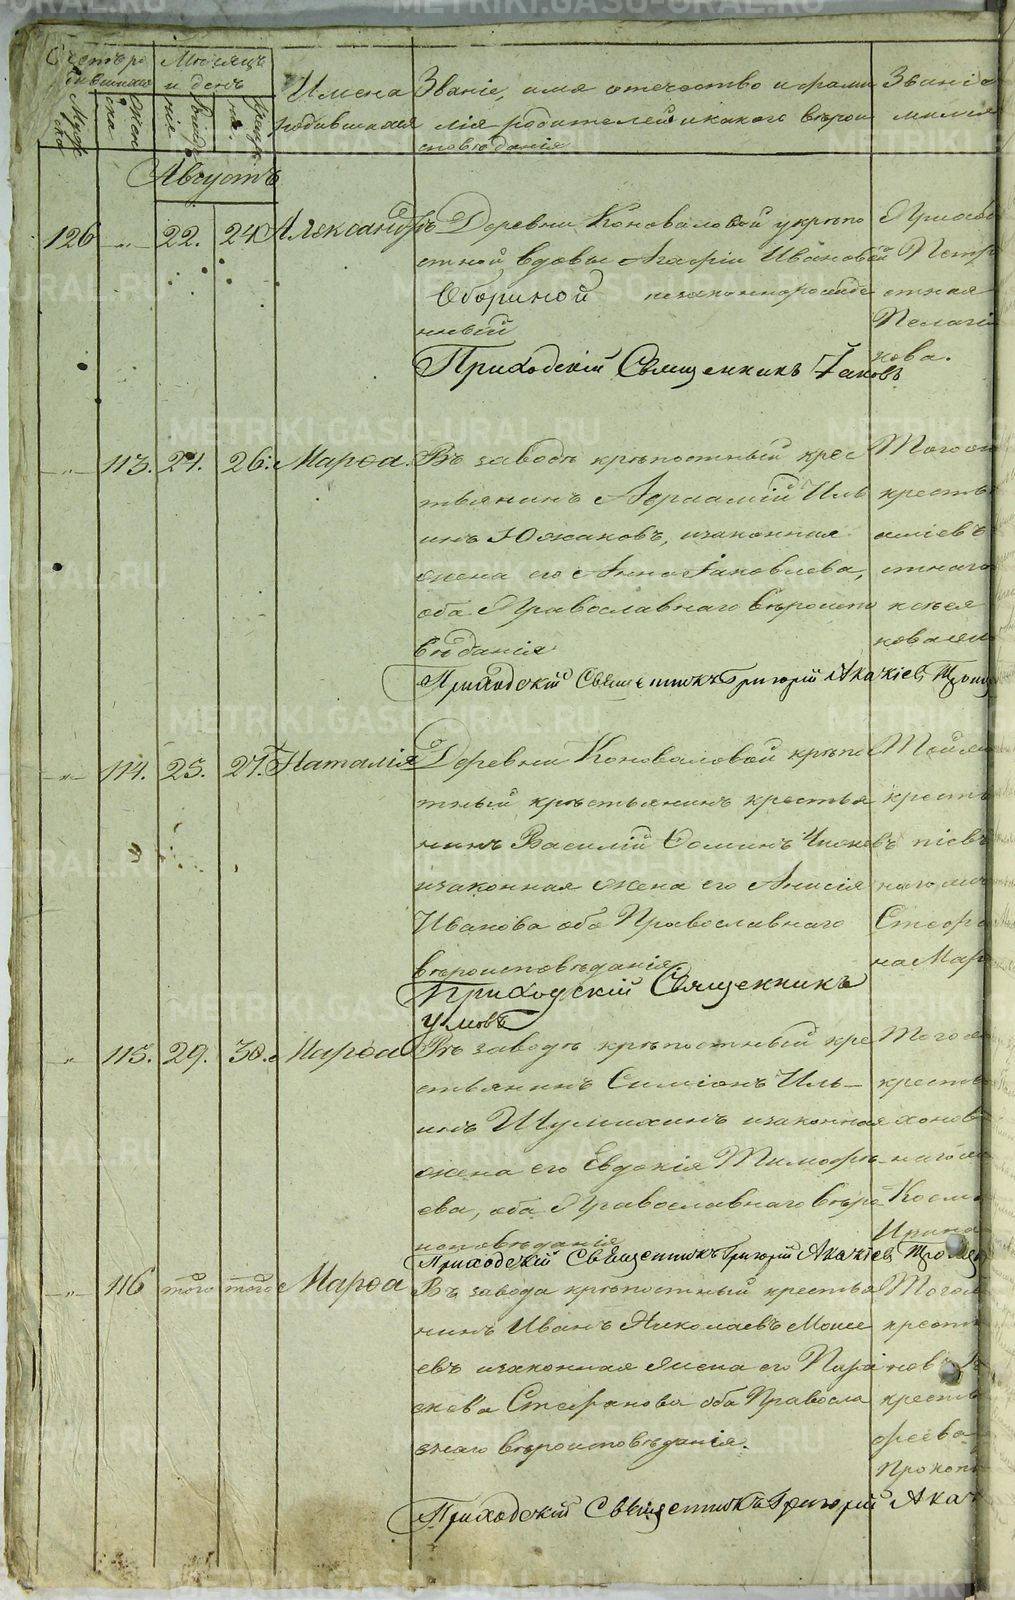 Счетъ ро
дившихся
Муж
ска
Жен
ска
Мѣсяцъ
и день
Имена
родившихся
Званіе, имя отечество и фами
лія родителей и какого вѣрои
сповѣданія
Званіе
Августъ
126 -"- 22. 24 Александръ
Деревни Коноваловой у крѣпо
стной вдовы Агафіи Ивановой
Обориной незаконнорожде
нный
Приходскій Священникъ Іаковъ
Петр
стная
Пелагі
кова.
-"- 113. 24. 26. Марѳа.
Въ заводѣ крѣпостный крес
тьянинъ Авраамій Иль
инъ Южаковъ, и законная
жена его Анна Іаковлева,
оба Православнаго вѣроиспо
вѣданія
Приходскій Священникъ Григорій Акакіев
Тогоже
кресть
стнаго
-"- 114. 25. 27. Наталія
Деревни Коноваловой крѣпо
тный крѣстьянинъ крестья
нинъ Василій Ѳоминъ
и законная жена его Анисія
Иванова оба Православнаго
вѣроисповѣданія
Приходскій Священникъ
Умовъ
Той же
кресть
Стефа
на Мар
-"- 115. 29. 30. Марѳа
Въ заводѣ крѣпостный кре
стьянинъ Симіонъ Иль-
инъ Шумихинъ и законная
жена его Евдокія Тимофѣ
ева, оба Православнаго вѣро
исповѣданія
Приходскій Священникъ Григорій Акакіев
Тогоже
кресть
Косма
Ирина
-"- 116 того того Марѳа
Въ завода крѣпостный крестья
нинъ Иванъ Николаевъ Моисе
евъ и законная жена его Пара
скева Стефанова оба Правосла
внаго вѣроисповѣданія.
Приходскій Священникъ Григорій Акак
Тогоже
кресть
кресть
фѣева
Прокоп
METRIKI.GASO-URAL.RU